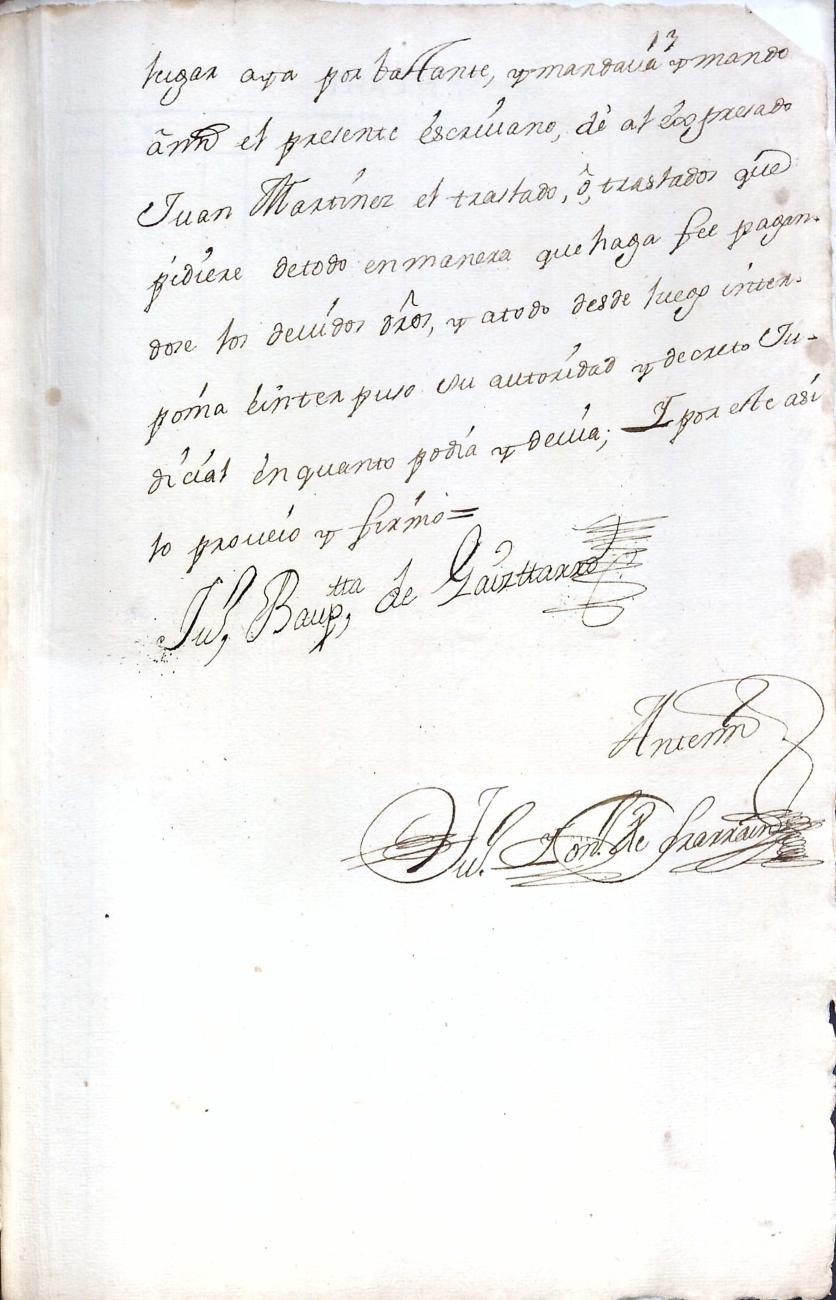 13
lugar aya por bastante, y mandaua y mando
ami el presente escriuano, dè al expresado
Juan Martinez el traslado, ò, traslados que
pidiere detodo enmanera que haga fee pagan-
dose los deuidos dros, y atodo desde luego inter-
ponia éinterpuso su autoridad y decreto Ju-
dicial én quanto podia y deuia; Y por este asi
lo proueió y firmó=
Ju, Baup,tta de Gaiztarro
Antemi
Ju. de Yrarrain